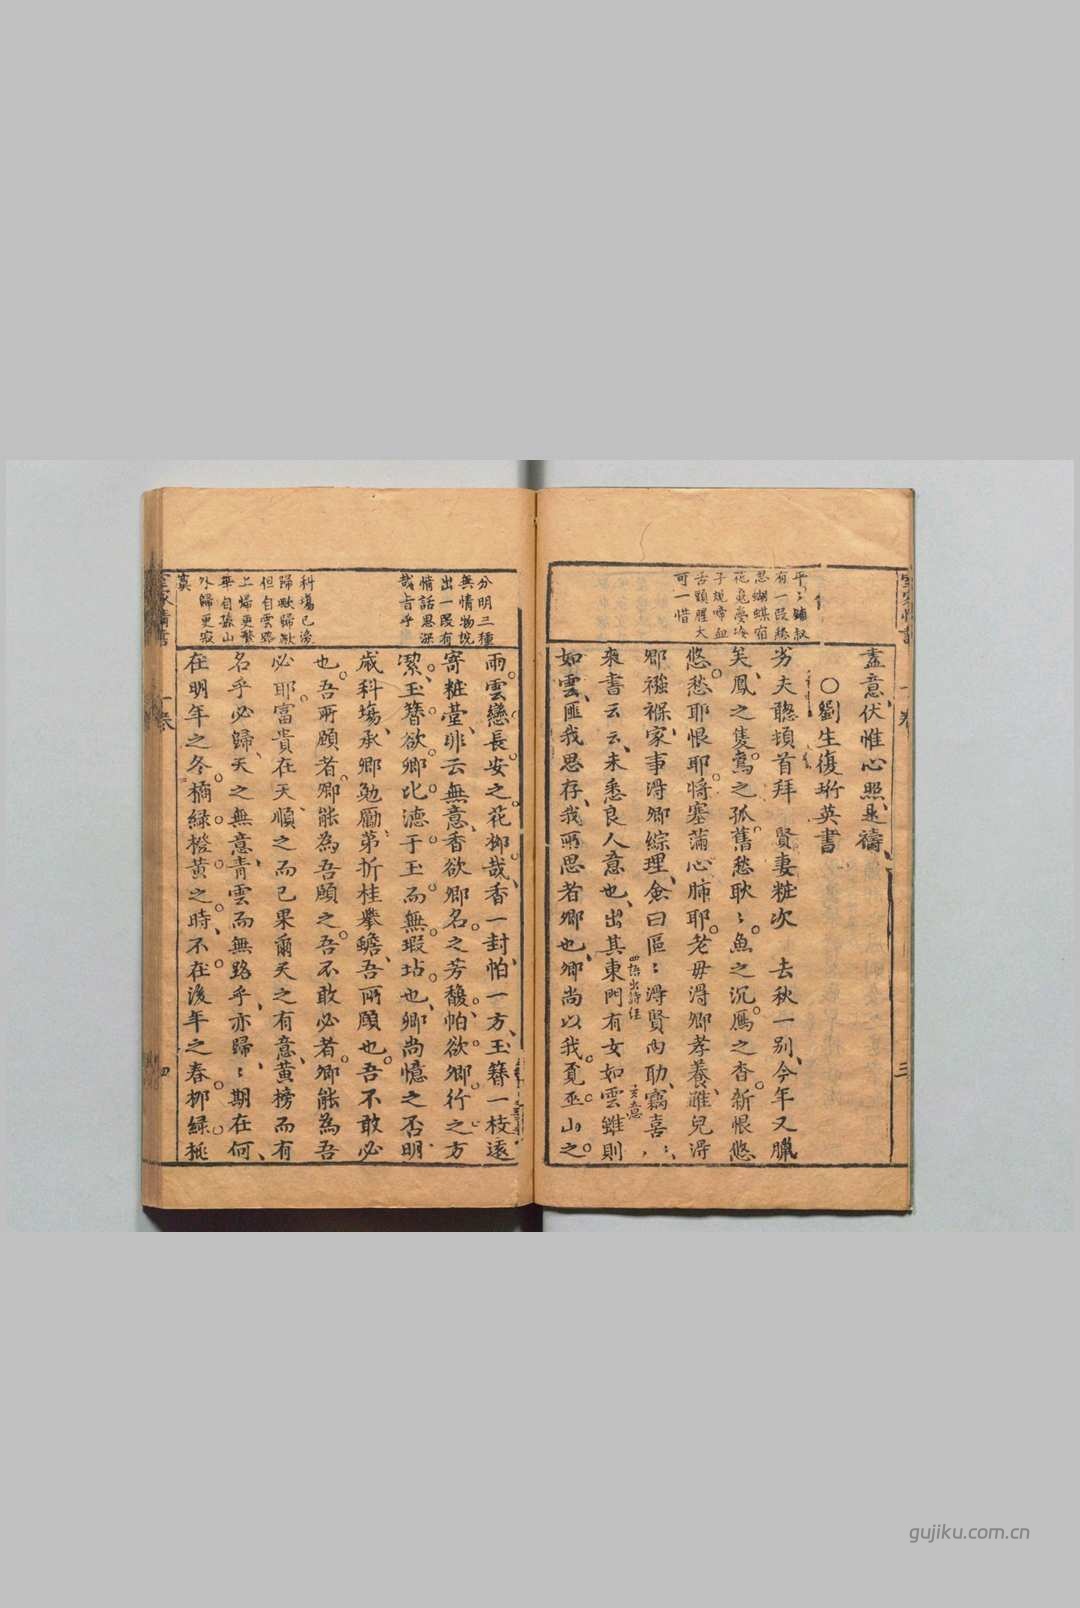 盡意伏惟心照是禱
○劉生復珩英書
劣夫聰頓首拜 賢妻粧次 去秋一別今年又臘
矣鳳之隻鸞之孤舊愁耿〻魚之沉鴈之杳新恨悠
悠愁耶恨耶將塞蒲心肺耶老毋淂卿孝養雖兒淂
卿襁褓家事淂卿綜理僉曰區〻淂賢內助竊喜〻
來書云云未悉良人意也出其東門有女如雲雖則
四語出詩經
玄意
如雲匪我思存我所思者卿也卿尚以我覓巫山之
平〻鋪叙
有一段綠
思蝴蝶宿
花魂夢
子規啼血
舌頭腥大
可一惜
三
雨雲戀長安之花柳哉香一封帕一方玉簪一枝遠
寄粧臺非云無意香欲卿名之芳馥帕欲卿行之方
潔玉簪欲卿比德于玉而無瑕玷也卿尚憶之否明
歲科場承卿勉勵第折桂攀蟾吾所願也吾不敢必
也吾所願者卿能為吾願之吾不敢必者卿能為吾
必耶富貴在天順之而已果爾天之有意黃榜而有
名乎必歸天之無意青雲而無路乎亦歸〻期在何
在明年之冬橘綠橙黃之時不在後年之春柳綠桃
分明三種
無情物說
出一段有
情話思深
哉旨乎
科塲已後
歸歟歸歟
但自雲路
上歸更繁
華自孫山
外歸更寂
寞
一卷
四
gujiku.com.cn